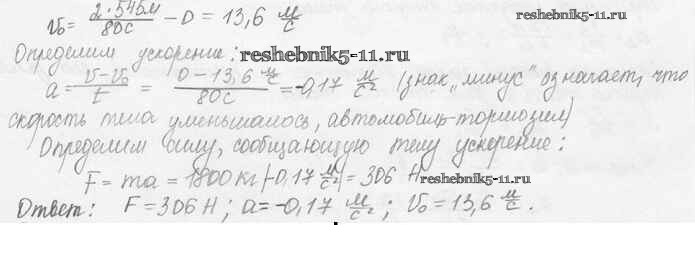 reshebnik5-11.ru
v₀ = 2·545м/80с − 0 = 13,6 м/с
Определим ускорение: reshebnik5-11.ru
a = v−v₀/t = 0−13,6 м/с/80с = −0,17 м/с² (знак „минус“ означает, что
скорость тела уменьшалось, автомобиль тормозил)
Определим силу, сообщающую телу ускорение:
F = ma = 1800 кг |−0,17 м/с²| = 306 Н
reshebnik5-11.ru
Ответ: F = 306 Н; a = −0,17 м/с²; v₀ = 13,6 м/с.